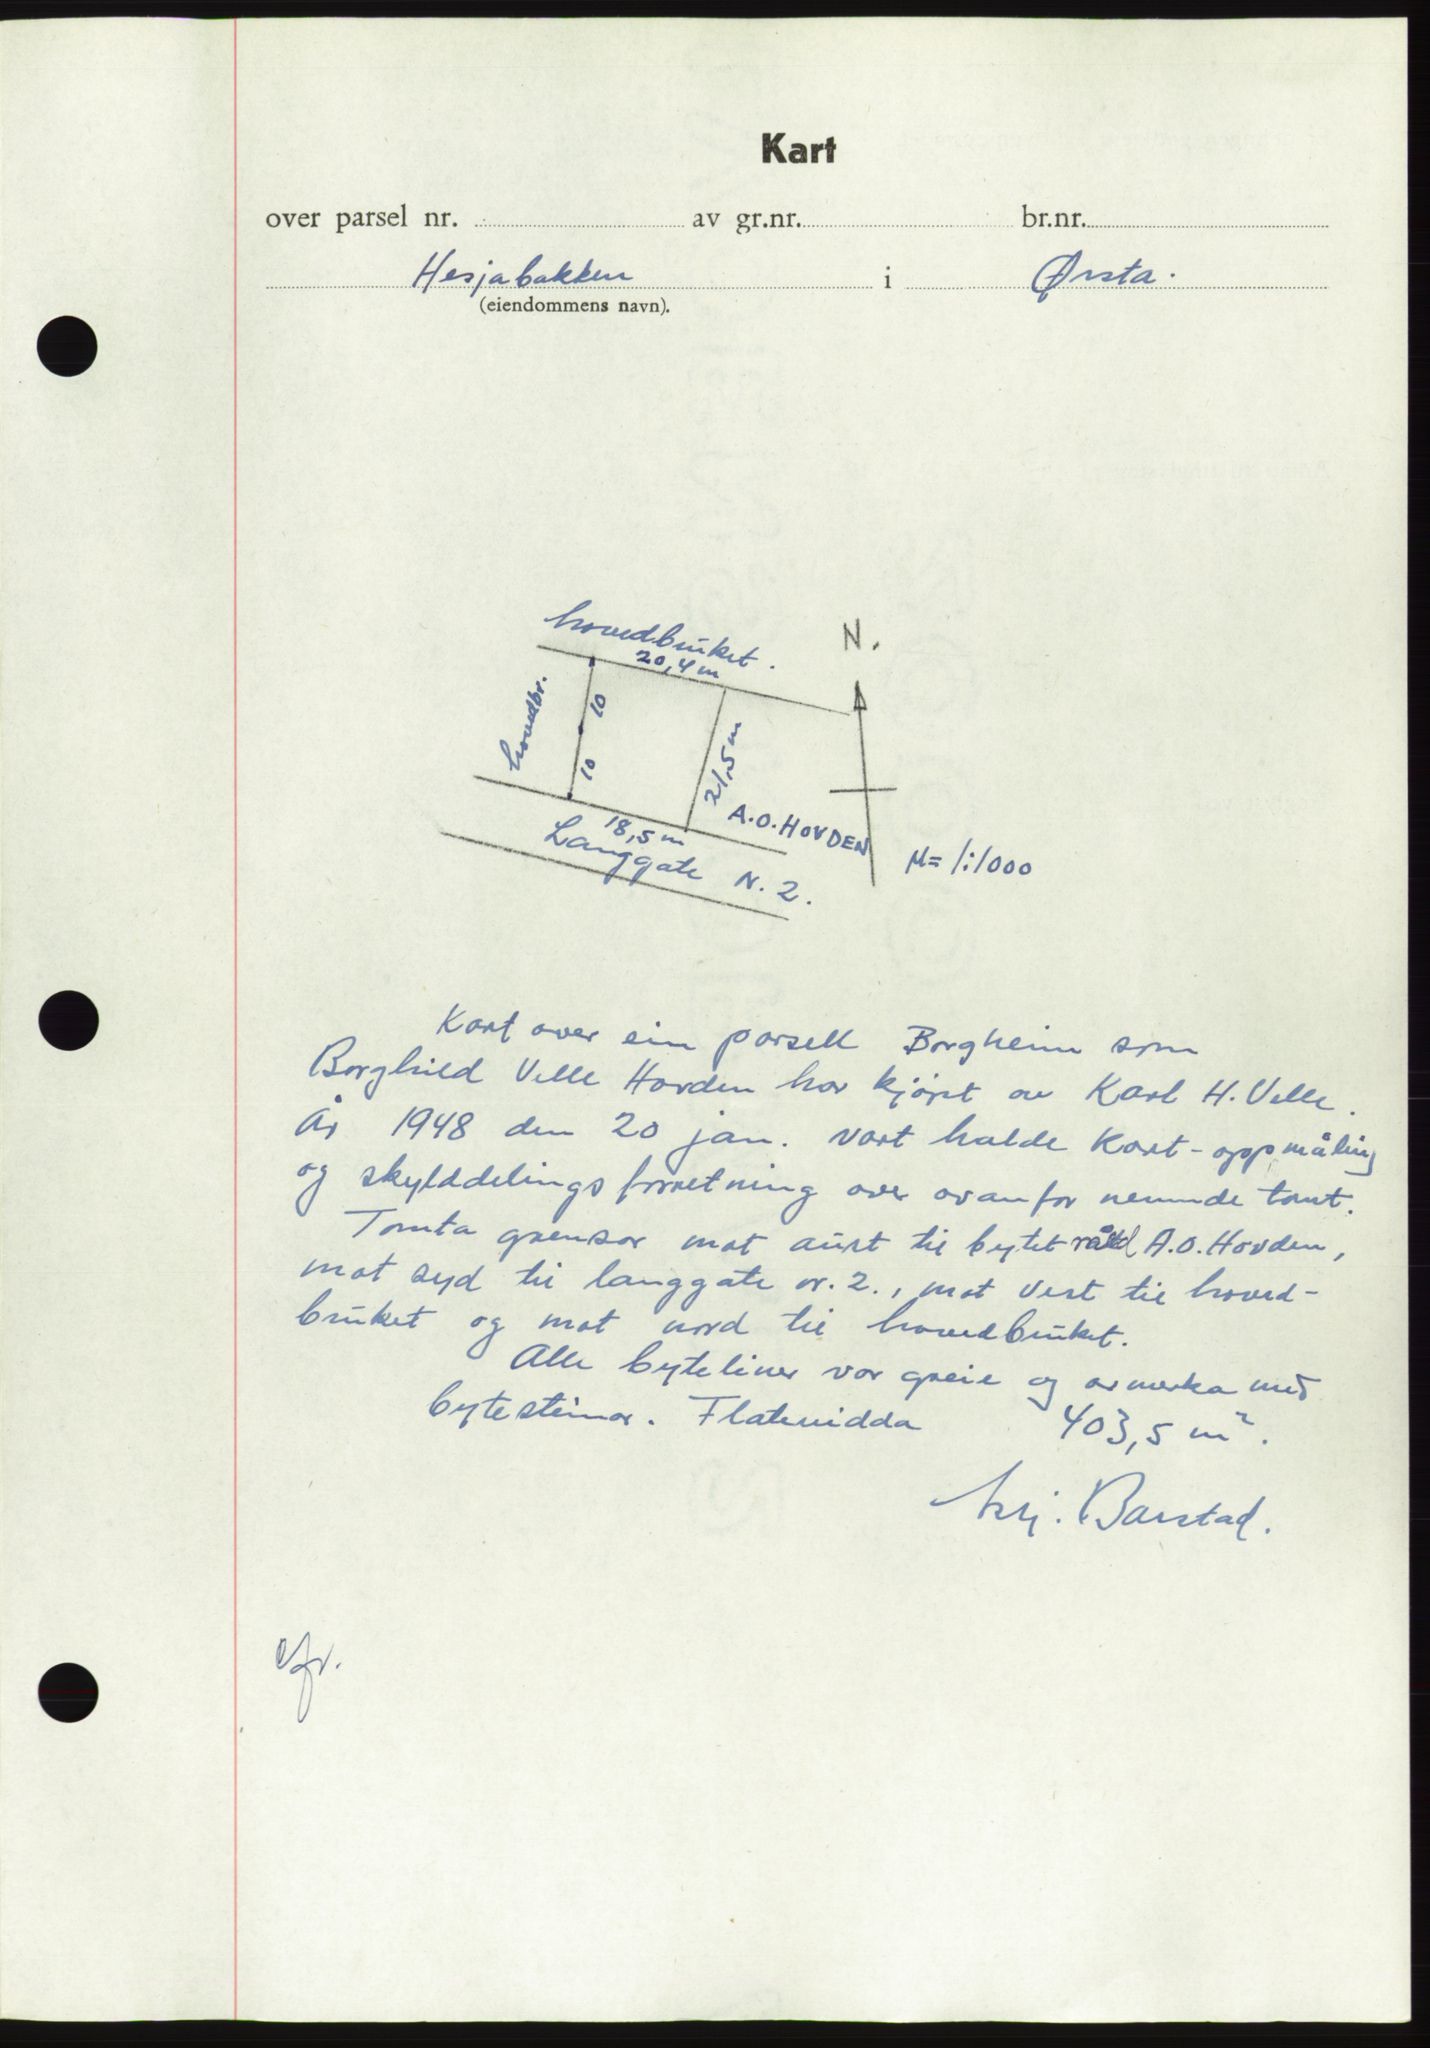 Kart
over parsel nr. av gr.nr. br.nr.
Hesjabakken i Ørsta.
(eiendommens navn).
hovedbruket.
20,4 m
N.
hovedbr.
10
10
21,5 m
A.O. HOVDEN
18,5 m
Langgate N. 2.
M = 1:1000
Kart over ein parsell Borgheim som
Borghild Velle Hovden har kjøpt av Karl H. Velle.
År 1948 den 20 jan. vart halde Kart-oppmåling
og skylddelingsforretning over ovanfor nemnde tomt.
Tomta grensar mot aust til bytet A.O. Hovden,
mot syd til langgate nr. 2., mot vest til hoved-
bruket og mot nord til hovedbruket.
Alle byteliner var greie og avmerka med
bytesteinar. Flatevidda 403,5 m².
Barstad.